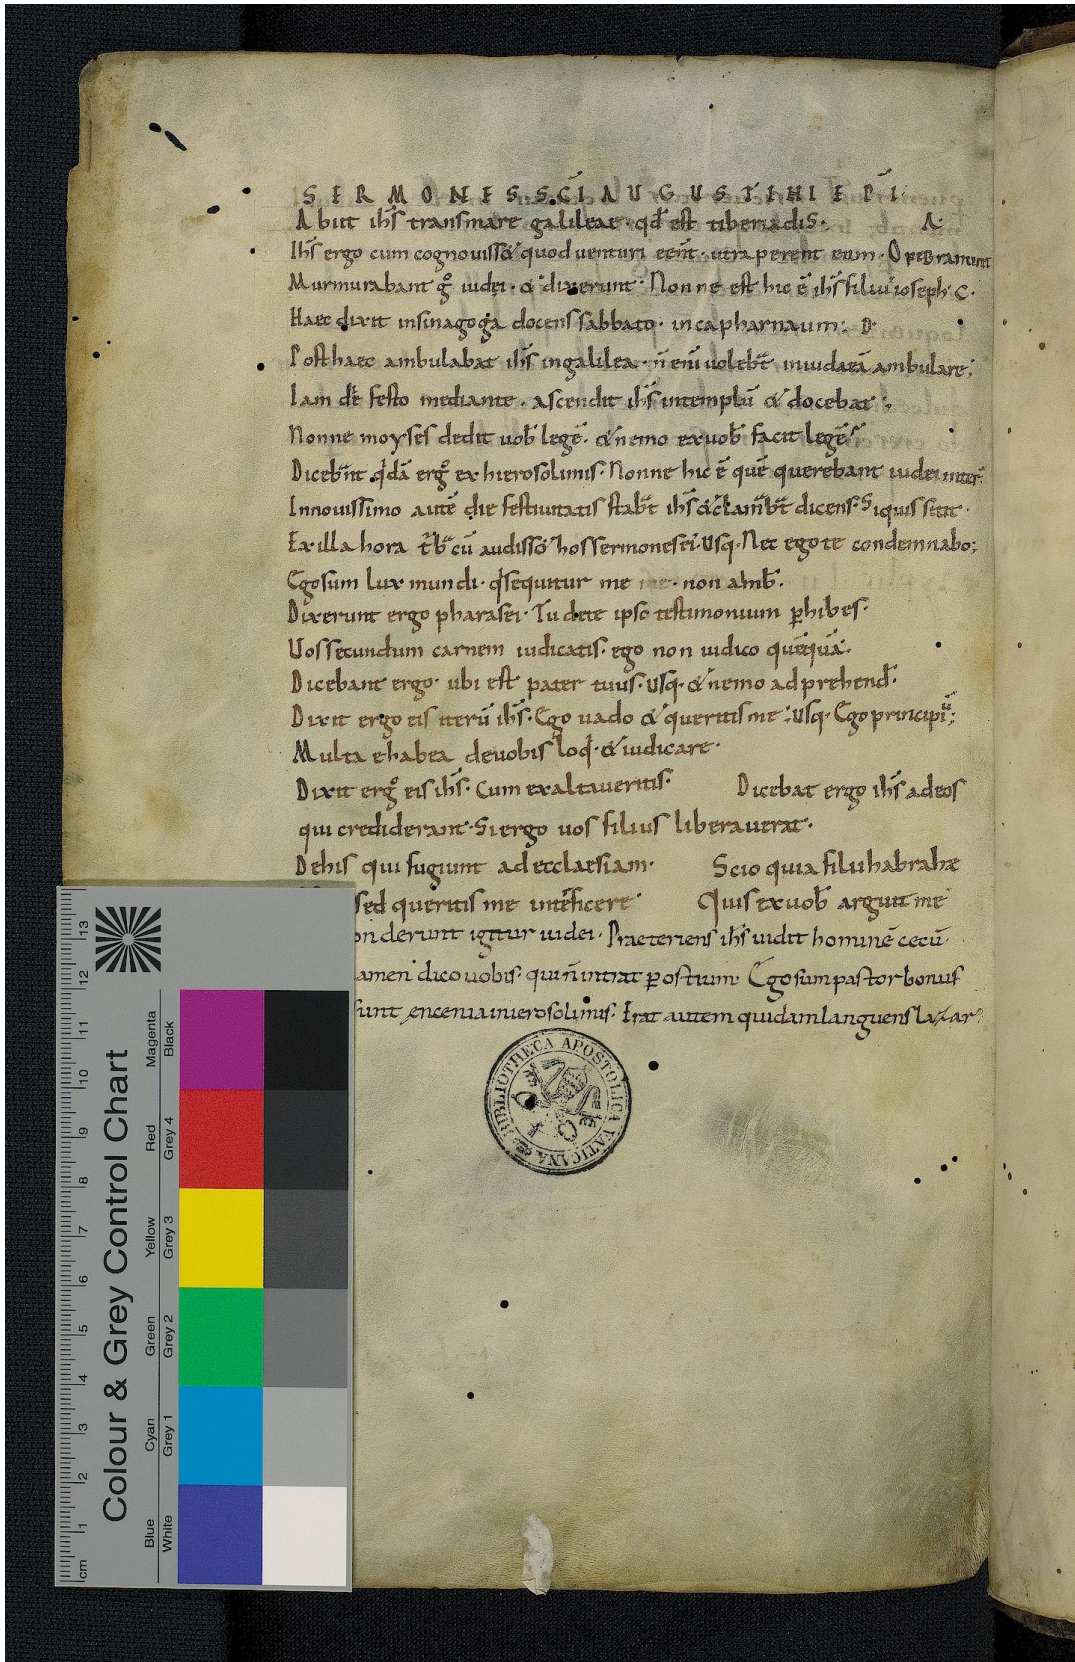 SERMONES SCI AUGUSTINI EPI
Abiit ihs̄ transmare galileae· qd̄ est tiberiadis·. A·
Ihs̄ ergo cum cognovisset quod venturi eēnt· ut raperent eum· Operamini
Murmurabant gͦ iudei· & dixerunt· Nonne est hic ē ihs̄ filiuˀ ioseph· C·
Haec dixit insinagoga docens sabbato· in capharnaum; D·
Posthaec ambulabat ihs̄ ingalilea· n̄ enī volebat̄ iniudaeā ambulare;
Iam dē festo mediante· ascendit ihs̄ intemplū & docebat;
Nonne moyses dedit vob̄ legē· & nemo exvob̄ facit legē
Diceb̄nt qdā ergͦ ex hierosolimis· Nonne hic ē quē querebant iudei interf̄·
Innovissimo autē die festivitatis stabt̄ ihs̄ & clamabt̄ dicens· Siquis sitit·
Exilla hora cū audissent hos sermones ei· Usq· Nec ego te condemnabo;
Ego sum lux mundi· qi sequitur me· non amb̄·
Dixerunt ergo pharasei· Tu dete ipso testimonium phibes·
Vos secundum carnem iudicatis· ego non iudico quēquā·
Dicebant ergo· ubi est pater tuus· Usq· & nemo adprehend̄·
Dixit ergo eis iterū ihs̄· Ego vado & queritis me; Usq· Ego principiū;
Multa habea devobis loq̄· & iudicare·
Dixit ergͦ eis ihs̄· Cum exaltaveritis· Dicebat ergo ihs̄ adeos
qui crediderant· Si ergo vos filius liberaverat·
Dehis qui fugiunt ad ecclaesiam· Scio quia filii habrahae
sed queritis me intēficere· Quis exvob̄ arguit me
onderunt igitur iudei· Praeteriens ihs̄ vidit hominē cecū·
amen dico vobis· qui n̄ intrat p ostium· Ego sum pastor bonus
sunt encenia inierosolimis· Erat autem quidam languens lazar
BIBLIOTHECA APOSTOLICA VATICANA
Colour & Grey Control Chart
Blue Cyan Green Yellow Red Magenta
White Grey 1 Grey 2 Grey 3 Grey 4 Black
cm 1 2 3 4 5 6 7 8 9 10 11 12 13